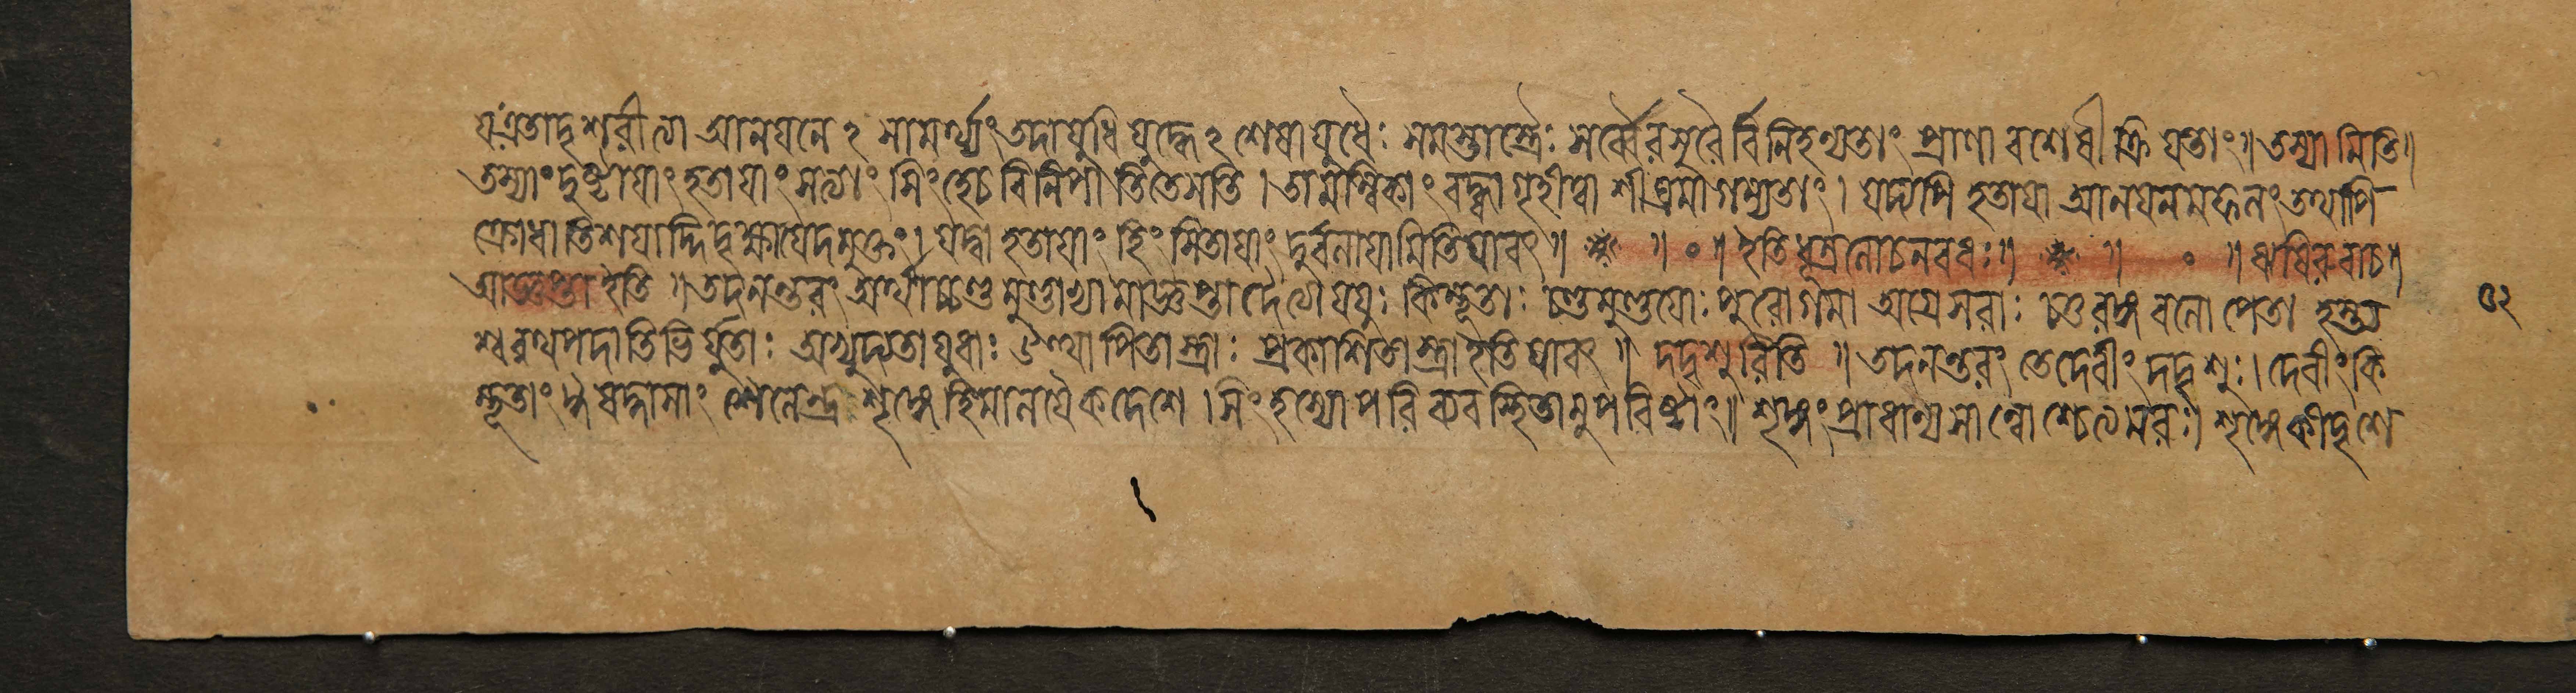 যং এতাদৃশরীত্যা আনযনে ঽ সামর্থ্যং তদা যুধি যুদ্ধে ঽ শেষাযুধৈঃ সমস্তাস্ত্রৈঃ সর্ব্বৈরসুরৈর্বিনিহন্যতাং প্রাণাবশেষী ক্রিযতাং॥ তস্যামিতি॥
তস্যাং দুষ্টাযাং হতাযাং সত্যাং সিংহেচ বিনিপাতিতে সতি। তামম্বিকাং বদ্ধ্বা গৃহীত্বা শীঘ্রমাগম্যতাং। যদ্যপি হতাযা আনযনমফলং তথাপি
ক্রোধাতিশযাদ্দিদৃক্ষাযেদমুক্তং। যদ্বা হতাযাং হিংসিতাযাং দুর্বলাযামিতি যাবৎ॥ ॥ ॰ ॥ ইতি ধূম্রলোচনবধঃ॥ ॥ ॰ ॥ ঋষিরুবাচ॥
আজ্ঞপ্তা ইতি॥ তদনন্তরং অর্থাচ্চণ্ডমুণ্ডাখ্যামাজ্ঞপ্তা দৈত্যা যযুঃ কিম্ভূতাঃ চণ্ডমুণ্ডযোঃ পুরোগমা অগ্রেসরাঃ চতুরঙ্গবলোপেতা হস্ত্য ৫২
শ্বরথপদাতিভির্যুতাঃ অভ্যুদ্যতাযুধাঃ উত্থাপিতাস্ত্রাঃ প্রকাশিতাস্ত্রা ইতি যাবৎ॥ দদৃশুরিতি॥ তদনন্তরং তে দেবীং দদৃশুঃ। দেবীং কি
ম্ভূতাং ঈষদ্ধাসাং শৈলেন্দ্রশৃঙ্গে হিমালযৈকদেশে। সিংহস্যোপরি ব্যবস্থিতামুপবিষ্টাং॥ শৃঙ্গং প্রাধান্যসান্বোশ্চেত্যমরঃ। শৃঙ্গে কীদৃশে